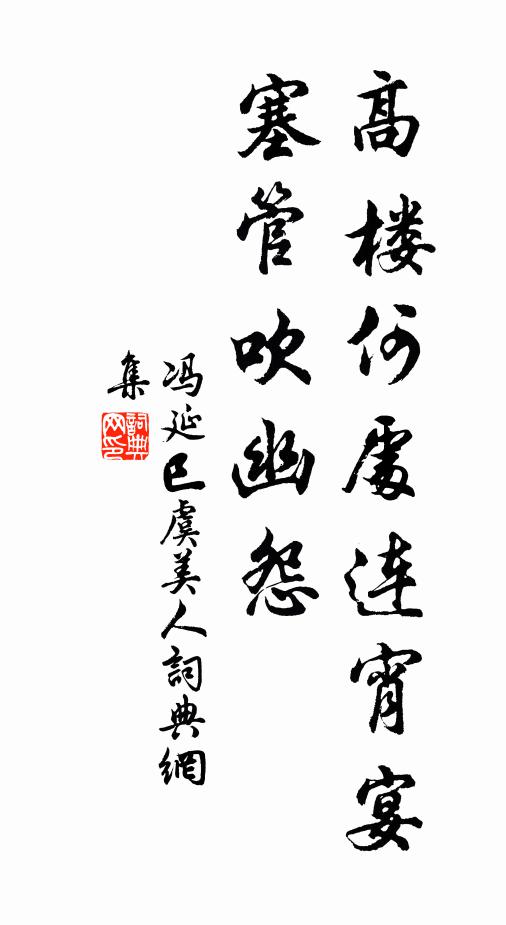 高楼何處连宵宴
塞管吹幽怨
冯延巳虞美人詞典網
集
詞典
网印